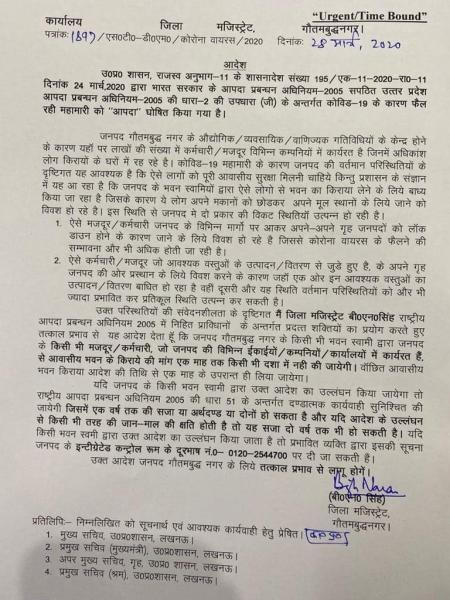 "Urgent/Time Bound"
कार्यालय जिला मजिस्ट्रेट, गौतमबुद्धनगर।
पत्रांकः 1397/एस०टी०-डी०एम०/कोरोना वायरस/2020 दिनांकः 28 मार्च, 2020
आदेश
उ०प्र० शासन, राजस्व अनुभाग-11 के शासनादेश संख्या 195/एक-11-2020-रा०-11
दिनांक 24 मार्च,2020 द्वारा भारत सरकार के आपदा प्रबन्धन अधिनियम-2005 सपठित उत्तर प्रदेश
आपदा प्रबन्धन अधिनियम-2005 की धारा-2 की उपधारा (जी) के अन्तर्गत कोविड-19 के कारण फैल
रही महामारी को "आपदा" घोषित किया गया है।
जनपद गौतमबुद्ध नगर के औद्योगिक/व्यवसायिक/वाणिज्यक गतिविधियों के केन्द्र होने
के कारण यहाँ पर लाखों की संख्या में कर्मचारी/मजदूर विभिन्न कम्पनियों में कार्यरत है जिनमें अधिकांश
लोग किरायों के घरों में रह रहे है। कोविड-19 महामारी के कारण जनपद की वर्तमान परिस्थितियों के
दृष्टिगत यह आवश्यक है कि ऐसे लोगों को पूरी आवासीय सुरक्षा मिलनी चाहिये किन्तु प्रशासन के संज्ञान
में यह आ रहा है कि जनपद के भवन स्वामियों द्वारा ऐसे लोगो से भवन का किराया लेने के लिए बाध्य
किया जा रहा है जिसके कारण ये लोग अपने मकानों को छोडकर अपने मूल स्थानों के लिये जाने को
विवश हो रहे है। इस स्थिति से जनपद मे दो प्रकार की विकट स्थितियाँ उत्पन्न हो रही है।
1. ऐसे मजदूर/कर्मचारी जनपद के विभिन्न मार्गो पर आकर अपने-अपने गृह जनपदों को लॉक
डाउन होने के कारण जाने के लिए विवश हो रहे है जिससे कोरोना वायरस के फैलने की
सम्भावना और भी अधिक होती जा रही है।
2. ऐसे कर्मचारी/मजदूर जो आवश्यक वस्तुओं के उत्पादन/वितरण से जुडे हुए है, के अपने गृह
जनपद की ओर प्रस्थान के लिये विवश करने के कारण जहाँ एक ओर इन आवश्यक वस्तुओं का
उत्पादन/वितरण बाधित हो रहा है वहीं दूसरी और यह स्थिति वर्तमान परिस्थितियों को और भी
ज्यादा प्रभावित कर प्रतिकूल स्थिति उत्पन्न कर सकती है।
उक्त परिस्थितियों की संवेदनशीलता के दृष्टिगत मैं जिला मजिस्ट्रेट बी०एन०सिंह राष्ट्रीय
आपदा प्रबन्धन अधिनियम 2005 में निहित प्राविधानों के अन्तर्गत प्रदत्त शक्तियों का प्रयोग करते हुए
तत्काल प्रभाव से यह आदेश देता हूँ कि जनपद गौतमबुद्ध नगर के किसी भी भवन स्वामी द्वारा जनपद
के किसी भी मजदूर/कर्मचारी, जो जनपद की विभिन्न ईकाईयों/कम्पनियों/कार्यालयों में कार्यरत हैं,
से आवासीय भवन के किराये की मांग एक माह तक किसी भी दशा में नही की जायेगी। वाँछित आवासीय
भवन किराया आदेश की तिथि से एक माह के उपरान्त ही लिया जायेगा।
यदि जनपद के किसी भवन स्वामी द्वारा उक्त आदेश का उल्लंघन किया जायेगा तो
राष्ट्रीय आपदा प्रबन्धन अधिनियम 2005 की धारा 51 के अन्तर्गत दण्डात्मक कार्यवाही सुनिश्चित की
जायेगी जिसमें एक वर्ष तक की सजा या अर्थदण्ड या दोनों हो सकता है और यदि आदेश के उल्लंघन
से किसी भी तरह की जान-माल की क्षति होती है तो यह सजा दो वर्ष तक भी हो सकती है। यदि
किसी भवन स्वामी द्वारा उक्त आदेश का उल्लंघन किया जाता है तो प्रभावित व्यक्ति द्वारा इसकी सूचना
जनपद के इन्टीग्रेटेड कन्ट्रोल रूम के दूरभाष नं.०- 0120-2544700 पर दी जा सकती है।
उक्त आदेश जनपद गौतमबुद्ध नगर के लिये तत्काल प्रभाव से लागू होगें।
(बी०एन० सिंह)
जिला मजिस्ट्रेट,
गौतमबुद्धनगर।
प्रतिलिपिः- निम्नलिखित को सूचनार्थ एवं आवश्यक कार्यवाही हेतु प्रेषित।
1. मुख्य सचिव, उ०प्र०शासन, लखनऊ।
2. प्रमुख सचिव (मुख्यमंत्री), उ०प्र०शासन, लखनऊ।
3. अपर मुख्य सचिव, गृह, उ०प्र० शासन, लखनऊ।
4. प्रमुख सचिव (श्रम), उ०प्र०शासन, लखनऊ।